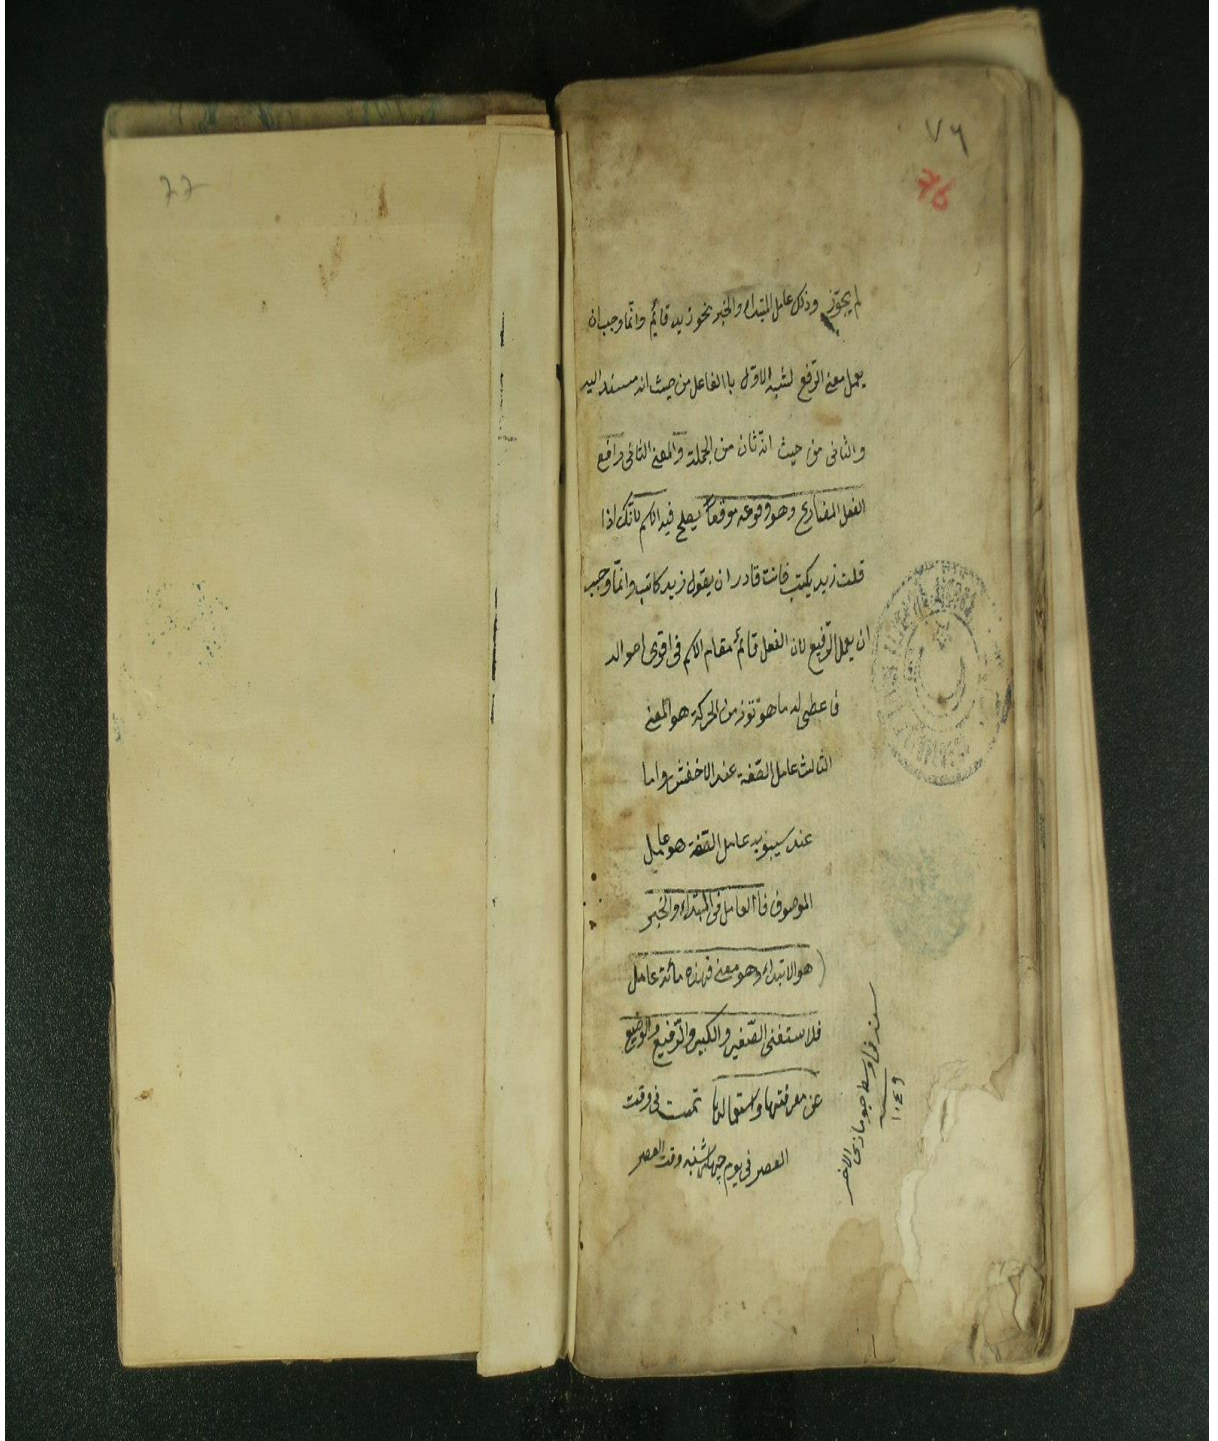 ٧٦
76
لم يجوّز وذلك عامل المبتداء والخبر نحو زيد قائم وانّما وجب ان
يعمل معنى الرّفع لشبه الاوّل با الفاعل من حيث انه مسند اليه
والثانى من حيث انّه ثان من الجملة والمعنى الثانى رافع
الفعل المضارع وهو وقوعه موقعاً يصلح فيه الاسم لانّك اذا
قلت زيد يكتب فانت قادر ان يقول زيد كاتب وانّما وجب
ان يعمل الرّفع لان الفعل قائم مقام الاسم فى اقوى احواله
فاعطى له ما هو من الحركة هو المعنى
الثالث عامل الصّفة عند الاخفش واما
عند سيبويه عامل الصّفة هو عامل
الموصوف فا العامل فى المبتداء والخبر
هو الابتداء وهو معنى فهذه مائة عامل
فلا ستغنى الصّغير والكبير والرّفيع والوضيع
عن معرفتها واستعمالها تمت فى وقت
العصر فى يوم چهارشنبه وقت العصر
فى اواسط جومازى الاخر
سنه
١٠٤٩